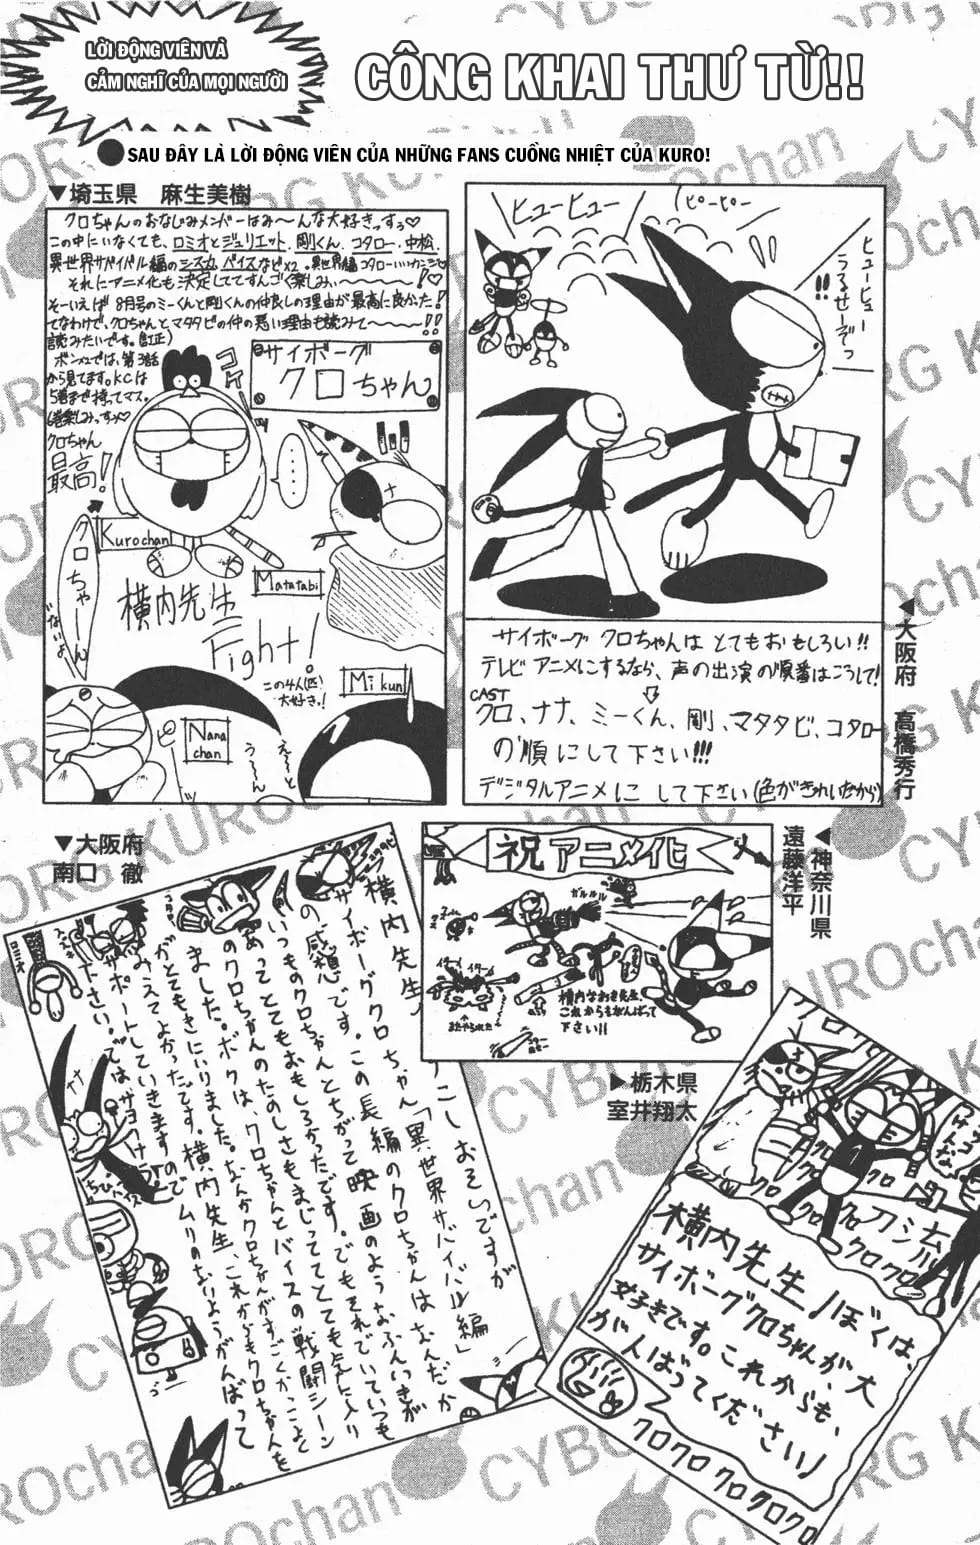 LỜI ĐỘNG VIÊN VÀ
CẢM NGHĨ CỦA MỌI NGƯỜI
CÔNG KHAI THƯ TỪ!!
SAU ĐÂY LÀ LỜI ĐỘNG VIÊN CỦA NHỮNG FANS CUỒNG NHIỆT CỦA KURO!
▼埼玉県 麻生美樹
クロちゃんのおなじみメンバーはみ〜んな大好きっすぅ♡
この中にいなくても、ロミオとジュリエット、剛くん、コタロー、中松、
それにアニメ化も決定しててすんごく楽しみぃ〜〜〜!♡
そーいえば8月号のミーくんと剛くんの仲良しの理由が最高に良かった!
てなわけで、クロちゃんとマタタビの仲の悪い理由も読みて〜〜〜!!
読みたいです。(訂正)
ボンボンでは、第3話
から見てます。KCは
5巻まで持ってマス。
クロちゃん
最高!
コケー
サイボーグ
クロちゃん
Kurochan
クロちゃーん
Matatabi
横内先生
Fight!
この4人(匹)
大好き。!
Mikun
Nana
chan
え〜と
う〜ん
ヒューヒュー
ヒューヒュー
ピーピー
ヒューヒュー
うるせーぞっ
!!
サイボーグ クロちゃんは とてもおもしろい!!
テレビアニメにするなら、声の出演の順番はこうして!
CAST
クロ、ナナ、ミーくん、剛、マタタビ、コタロー
の順にして下さい!!!
デジタルアニメに して下さい(色がきれいだから)
◀大阪府 高橋秀行
▼大阪府
南口 徹
横内先生
サイボーグクロちゃん「異世界サバイバル編」
の感想です。この長編のクロちゃんはなんだか
いつものクロちゃんとちがって映画のようなふんいきが
あってとてもおもしろかったです。でもそれでいていつも
のクロちゃんのたのしさもまじっててとても気に入り
ました。ボクは、クロちゃんとバイスの戦闘シーン
がとてもきにいりました。なんかクロちゃんがすごくかっこよく
みえてよかったです。横内先生、これからもクロちゃんを
サポートしていきますのでムリのないようがんばって
下さい。では、サヨナラ
祝 アニメ化
ガルルル
横内なおき先生、
これからもがんばって
下さい!!
◀神奈川県
遠藤洋平
▶栃木県
室井翔太
横内先生!ぼくは、
サイボーグクロちゃんが、大
好きです。これからも、
がんばってください!
クロクロクロクロクロ
CYBORG KUROchan